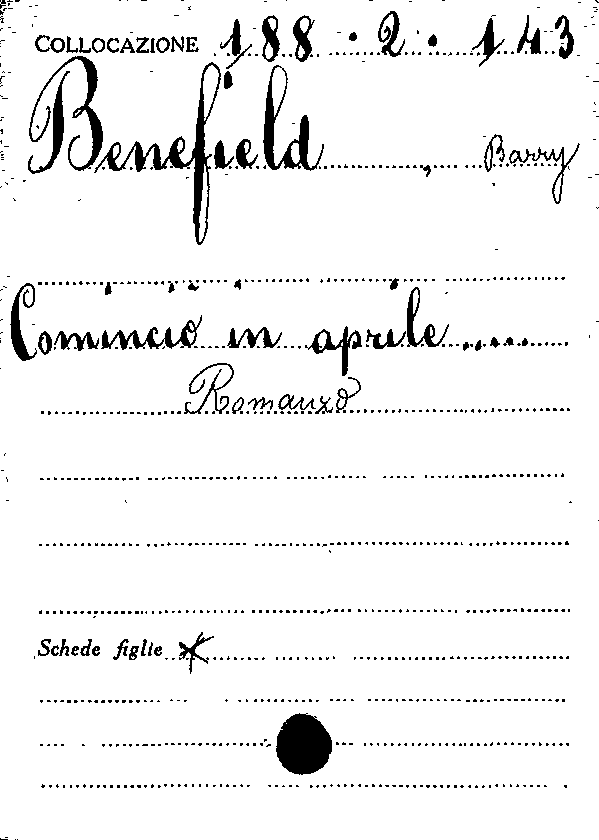 COLLOCAZIONE 188.2.143
Benefield, Barry
Cominciò in aprile.....
Romanzo
Schede figlie